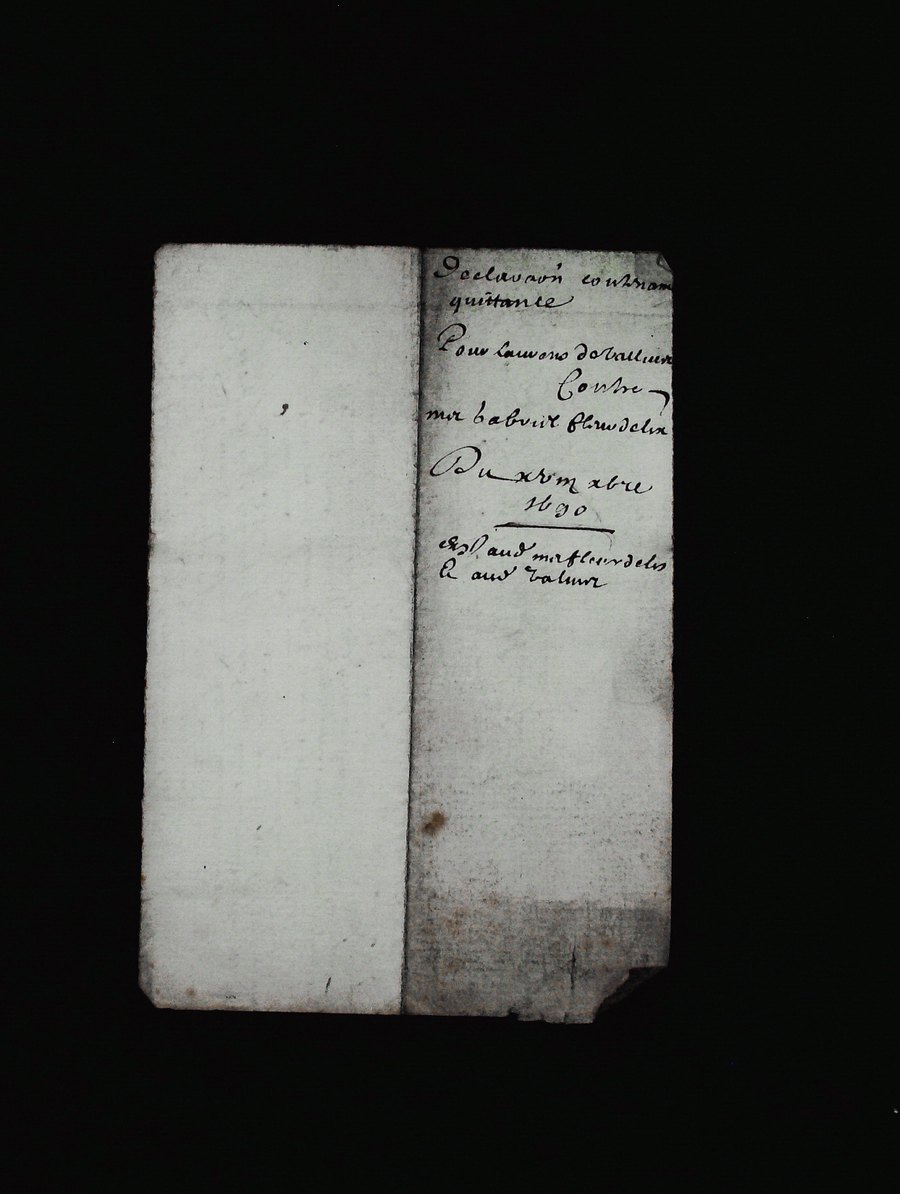 Declaraõn contenam
quittance
Pour laurens de vallier
Contre
me gabriel fleurdelix
Du xvm xbre
1690
Exp aud me fleurdelis
& aud valier